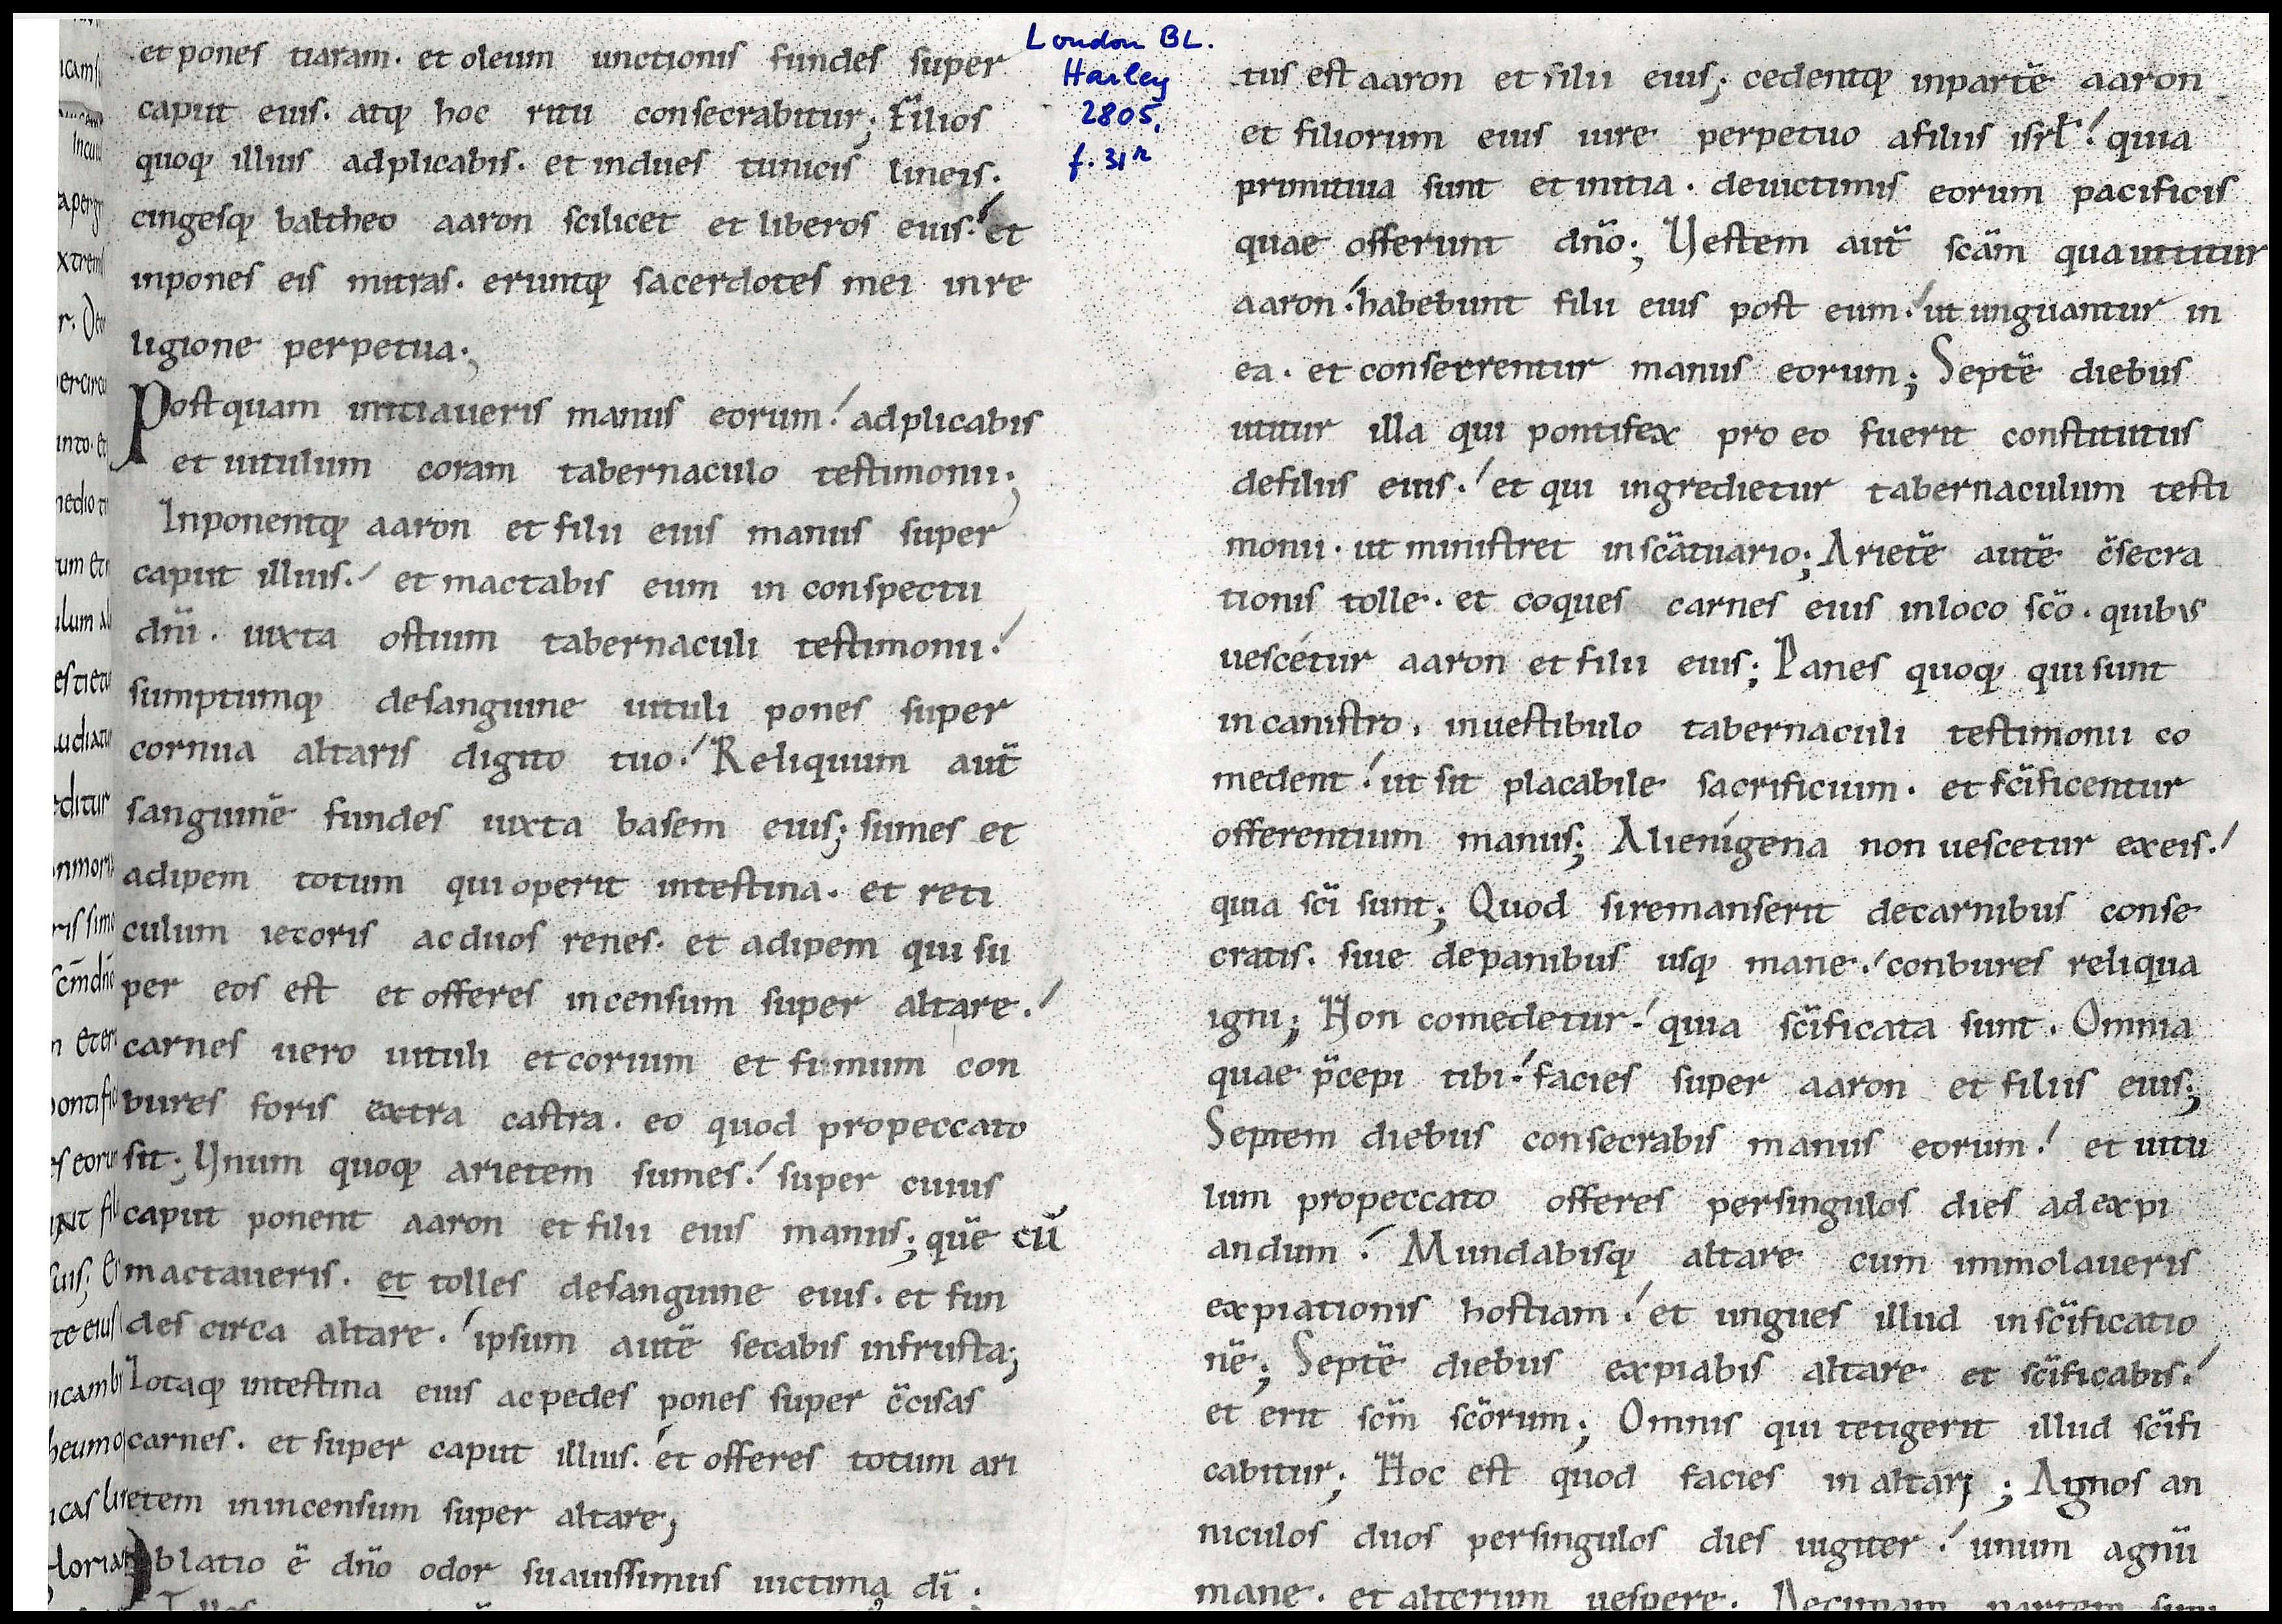 et pones tiaram. et oleum unctionis fundes super
caput eius. atq; hoc ritu consecrabitur; Filios
quoq; illius adplicabis. et indues tunicis lineis.
cingesq; baltheo aaron scilicet et liberos eius. et
inpones eis mitras. eruntq; sacerdotes mei in re
ligione perpetua.;
Postquam initiaueris manus eorum! adplicabis
et uitulum coram tabernaculo testimonii.;
Inponentq; aaron et filii eius manus super
caput illius.! et mactabis eum in conspectu
dn̄i. iuxta ostium tabernaculi testimonii.!
sumptumq; desanguine uituli pones super
cornua altaris digito tuo.! Reliquum aut̄
sanguinē fundes iuxta basem eius; sumes et
adipem totum qui operit intestina. et reti
culum iecoris ac duos renes. et adipem qui su
per eos est et offeres incensum super altare.!
carnes uero uituli et corium et fimum con
bures foris extra castra. eo quod propeccato
sit; Unum quoq; arietem sumes.! super cuius
caput ponent aaron et filii eius manus; quē cū
mactaueris. et tolles desanguine eius. et fun
des circa altare.! ipsum autē secabis infrusta;
Lotaq; intestina eius ac pedes pones super c̄cisas
carnes. et super caput illius.! et offeres totum ari
etem inincensum super altare;
Oblatio ē dn̄o odor suauissimus uictimę dī.
London BL.
Harley
2805,
f. 31r
tus est aaron et filii eius; cedentq; inpartē aaron
et filiorum eius iure perpetuo afiliis isrl̄! quia
primitiua sunt et initia. deuictimis eorum pacificis
quae offerunt dn̄o; Uestem aut̄ scām qua utitur
aaron! habebunt filii eius post eum! ut unguantur in
ea. et consecrentur manus eorum; Septē diebus
utitur illa qui pontifex pro eo fuerit constitutus
defiliis eius.! et qui ingredietur tabernaculum testi
monii. ut ministret inscātuario; Arietē autē c̄secra
tionis tolle. et coques carnes eius inloco scō. quibus
uescetur aaron et filii eius; Panes quoq; qui sunt
in canistro. inuestibulo tabernaculi testimonii co
medent! ut sit placabile sacrificium. et sc̄ificentur
offerentium manus; Alienigena non uescetur exeis.!
quia scī sunt; Quod siremanserit decarnibus conse
cratis. siue depanibus usq; mane.! conbures reliqua
igni; Non comedetur.! quia sc̄ificata sunt. Omnia
quae p̄cepi tibi! facies super aaron et filiis eius;
Septem diebus consecrabis manus eorum! et uitu
lum propeccato offeres persingulos dies ad expi
andum! Mundabisq; altare cum immolaueris
expiationis hostiam! et ungues illud insc̄ificatio
nē; Septē diebus expiabis altare et sc̄ificabis.!
et erit scm̄ scōrum; Omnis qui tetigerit illud sc̄ifi
cabitur; Hoc est quod facies in altari; Agnos an
niculos duos persingulos dies iugiter! unum agnū
mane. et alterum uespere. Decimam partem